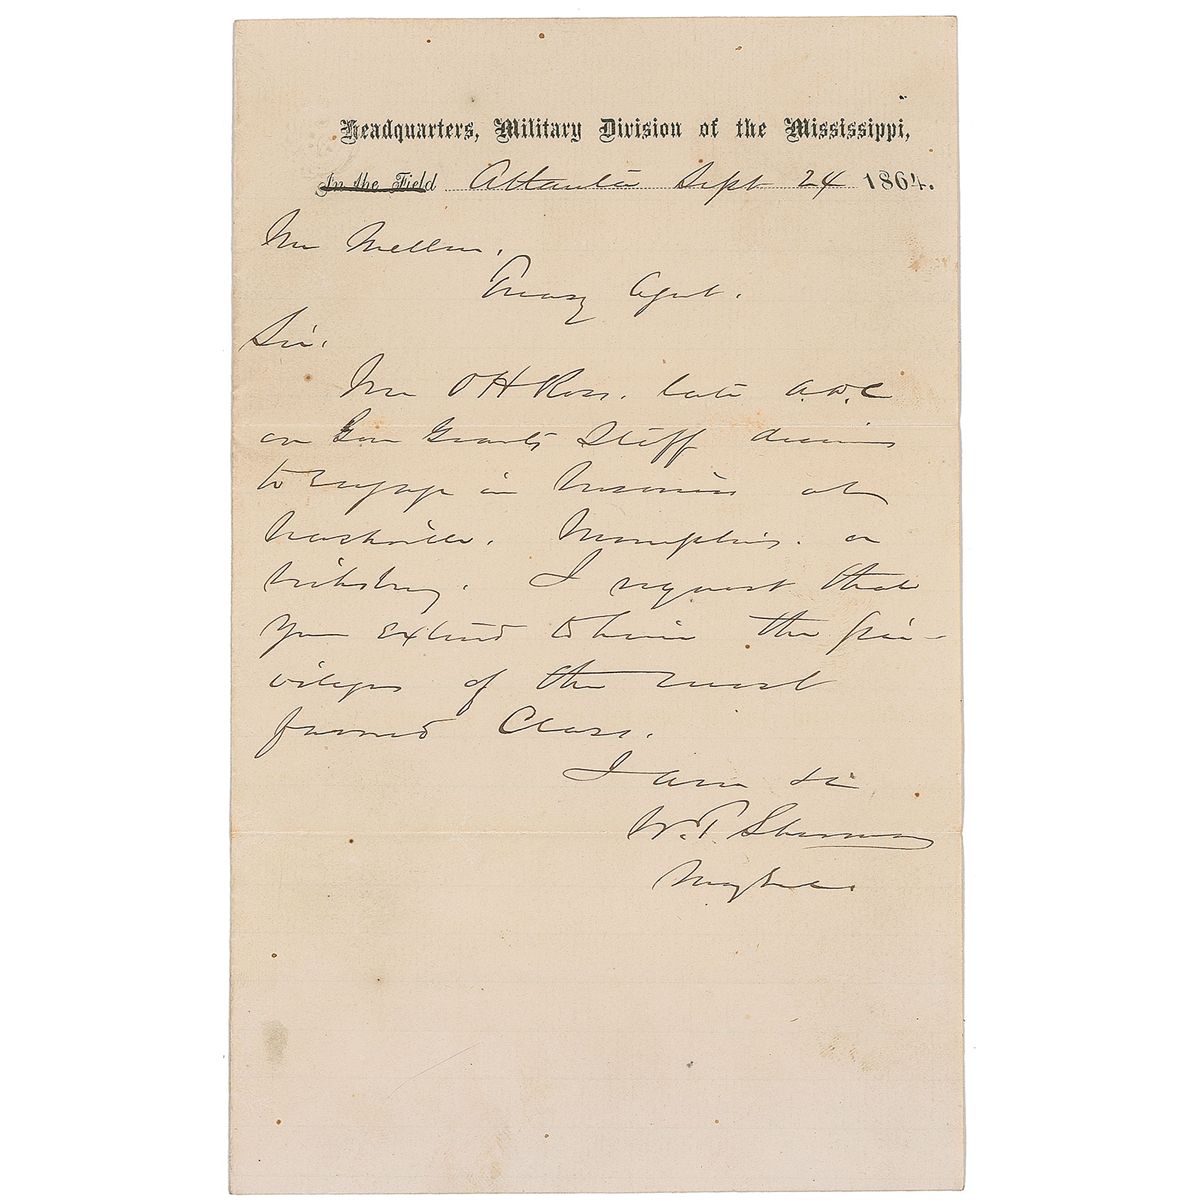 Headquarters, Military Division of the Mississippi,
In the Field Atlanta Sept 24 1864.
Mr Mellen.
Treasy Agent.
Sir.
Mr O H Ross. late A.D.C
on Gen Grants Staff desires
to engage in business at
Nashville. Memphis. or
Vicksburg. I request that
you extend to him the pri-
vileges of the most
favored Class.
I am &c
W. T. Sherman
Maj Genl.